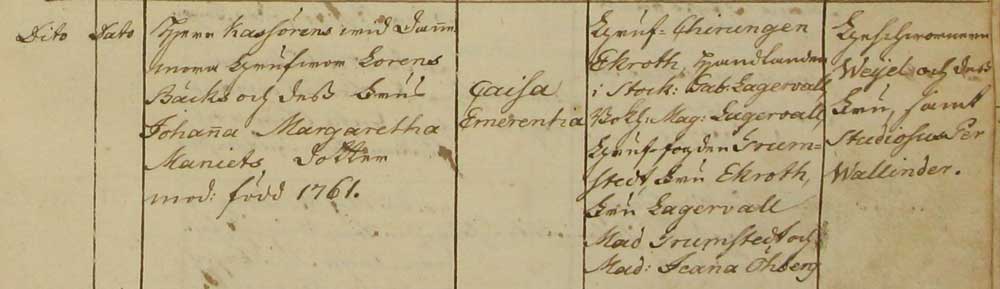 Dito
Dato
Herr Kassörens wid Danne
mora Grufwor Lorens
Bäcks och dess Frus
Johanna Margaretha
Maniets Dotter
mod: född 1761.
Caisa
Emerentia
Gruf-Chirurgen
Ekroth, Handlanden
i Stock: Gab: Lagervall
Bokh: Mag: Lagervall,
Gruf-fogden Trum-
stedt, Fru Ekroth,
Fru Lagervall
Mad Trumstedt och
Mad: Jeana Öhberg
Geschwornern
Weijel och dess
Fru, samt
Studiosus Per
Wallinder.